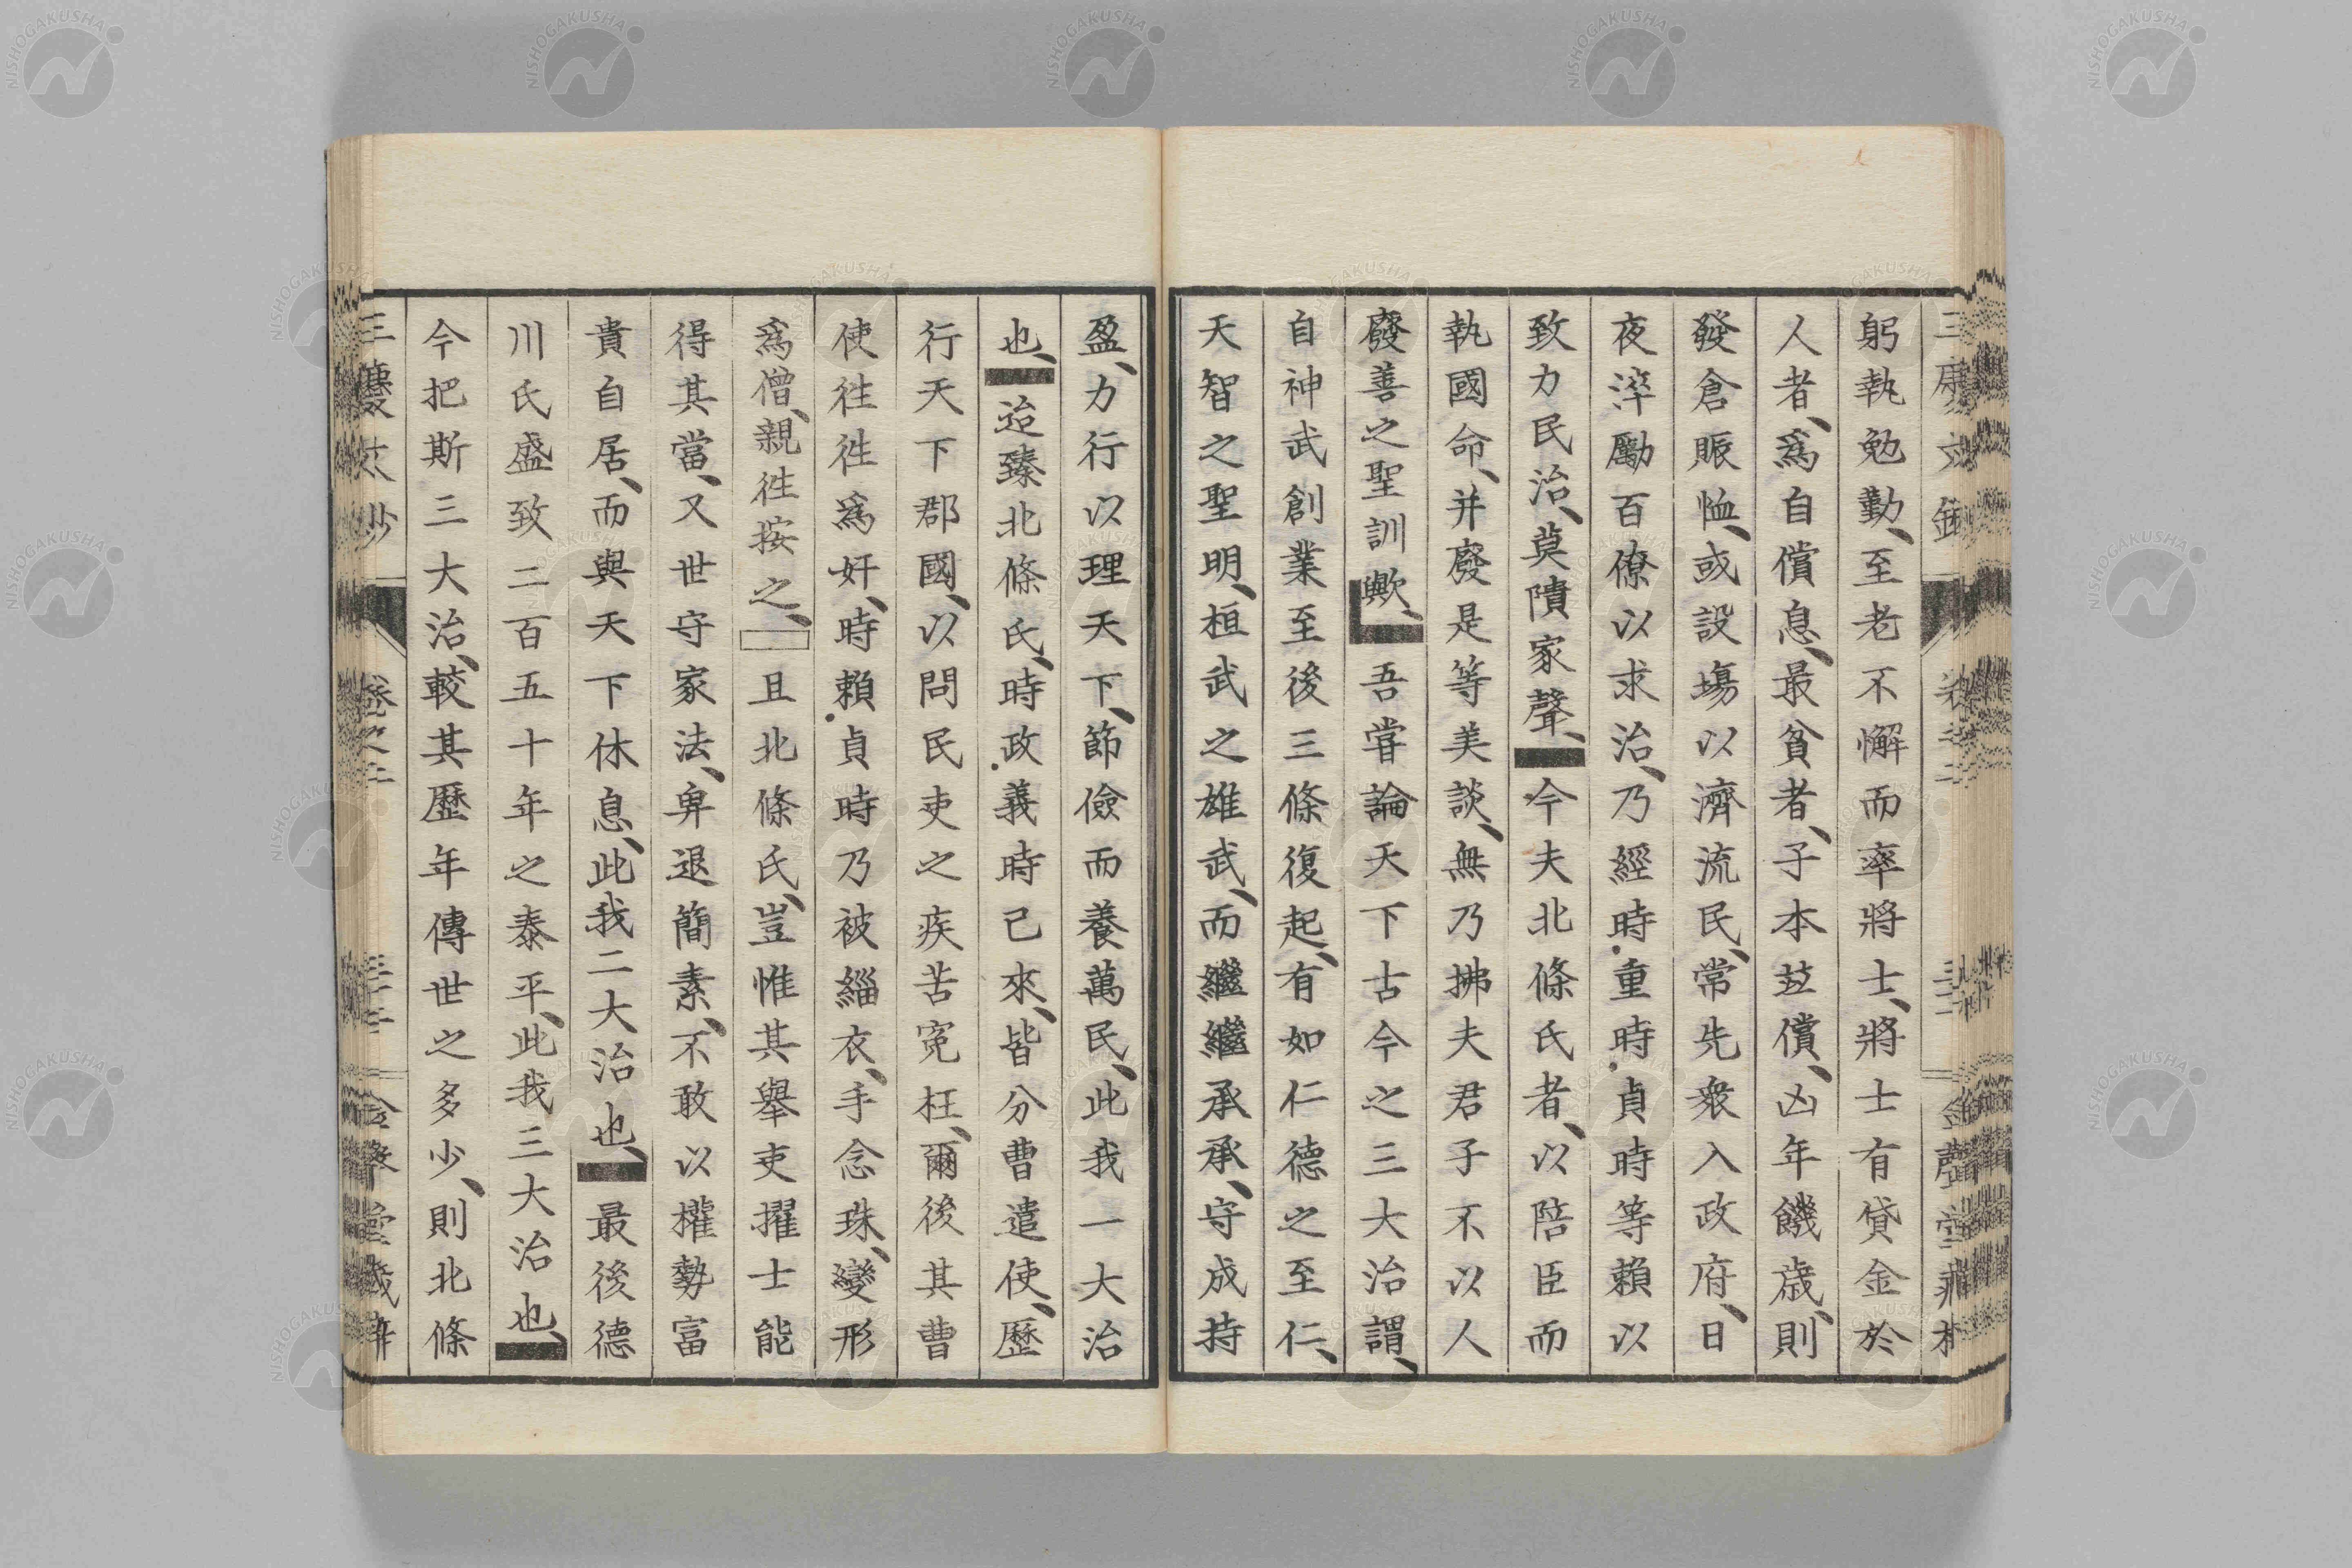 躬執勉勤、至老不懈而率將士、將士有貸金於
人者、爲自償息、最貧者、子本玆償、凶年饑歲、則
發倉賑恤、或設場以濟流民、常先衆入政府、日
夜淬勵百僚以求治、乃經時・重時・貞時等賴以
致力民治、莫隤家聲、今夫北條氏者、以陪臣而
執國命、并廢是等美談、無乃拂夫君子不以人
廢善之聖訓歟、吾嘗論天下古今之三大治謂、
自神武創業至後三條復起、有如仁德之至仁、
天智之聖明、桓武之雄武、而繼繼承承、守成持
盈、力行以理天下、節儉而養萬民、此我一大治
也、迨臻北條氏、時政・義時已來、皆分曹遣使、歷
行天下郡國、以問民吏之疾苦寃枉、爾後其曹
使徃徃爲奸、時賴・貞時乃被緇衣、手念珠、變形
爲僧、親徃按之、且北條氏、豈惟其舉吏擢士能
得其當、又世守家法、卑退簡素、不敢以權勢富
貴自居、而與天下休息、此我二大治也、最後德
川氏盛致二百五十年之泰平、此我三大治也、
今把斯三大治、較其歷年傳世之多少、則北條
卷之二
NISHOGAKUSHA